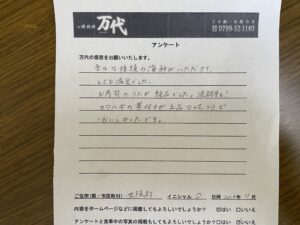 万代
ご予約・お問合せ
☎0799-52-1140
アンケート
万代の感想をお願いいたします。
の海鮮がいただけて、
とても満足でした。
お寿司のうにが絶品でした。
カワハギの煮付けが上品な
おいしかったです。
ご住所(県・市区町村) 大阪府 イニシャル O 日時 11月
内容をホームページなどに掲載してもよろしいでしょうか? はい いいえ
アンケートと食事中の写真の掲載もしてもよろしいでしょうか? はい いいえ